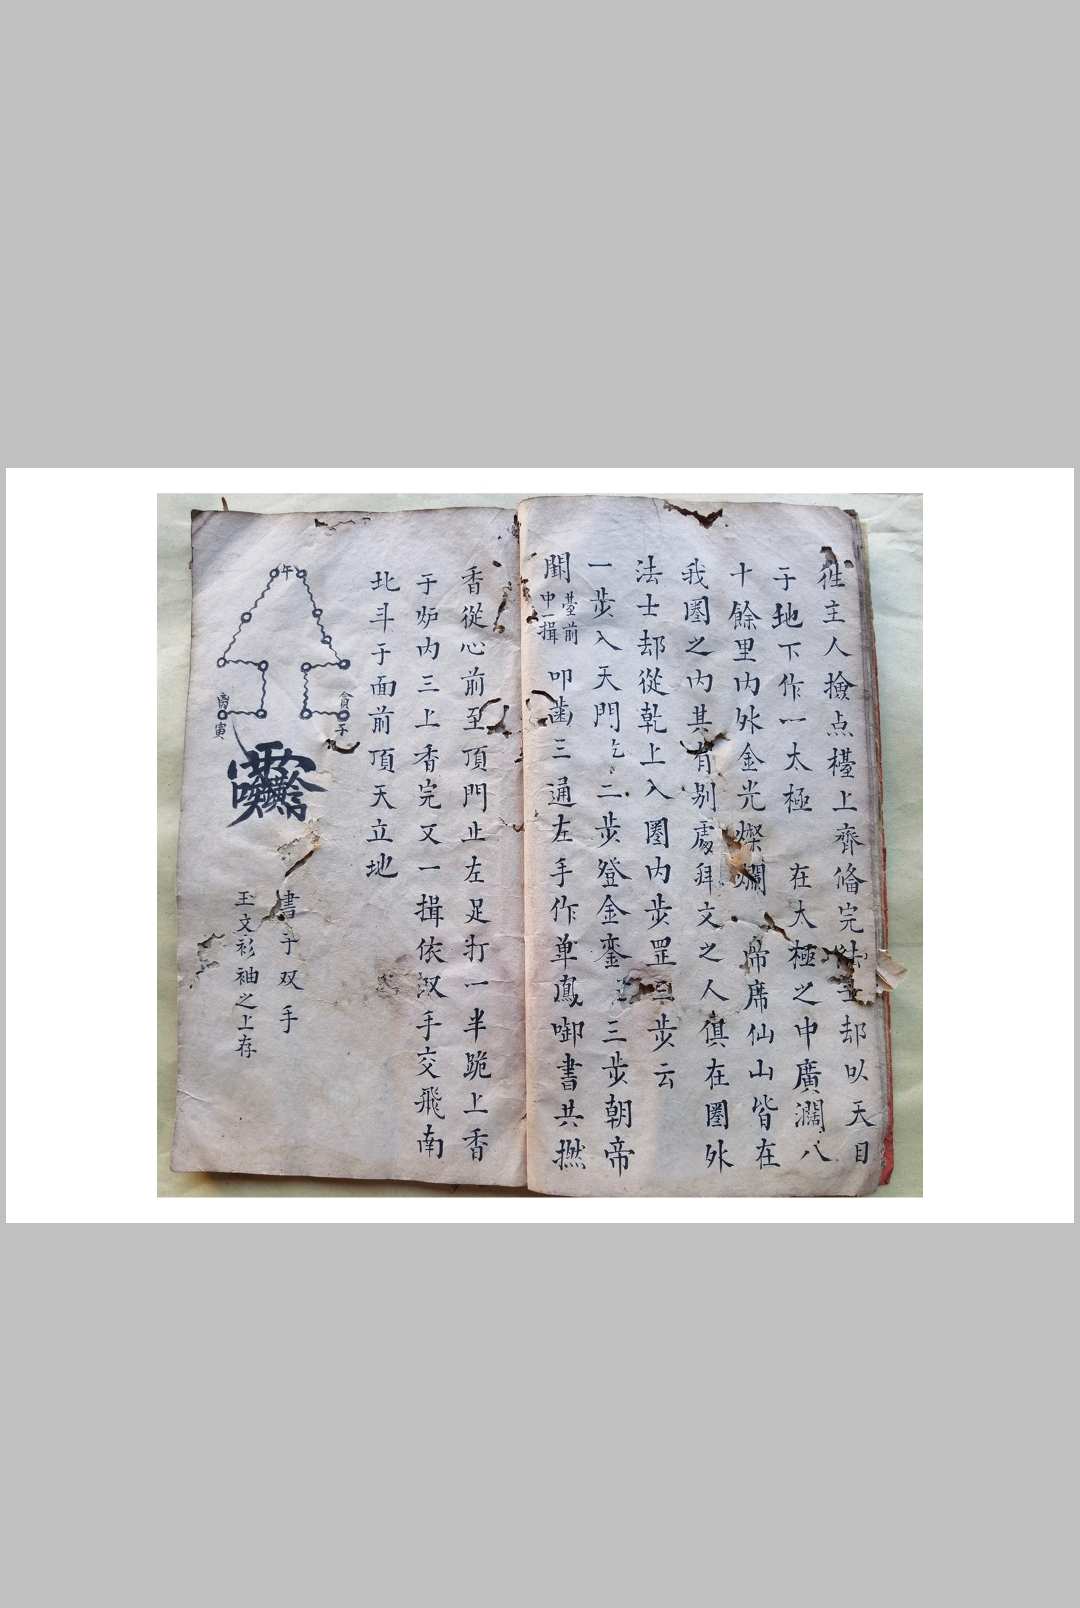 徃主人撿点檯上齊偹完法士却以天目
于地下作一太極 在太極之中廣濶八
十餘里内外金光燦爛 帝席仙山皆在
我圏之内其有别處拜文之人俱在圏外
法士却從乾上入圏内步罡三步云
一步入天門乞二步登金銮 三步朝帝
闕 臺前中一揖 叩齒三通左手作单鳳啣書共撚
香從心前至頂門止左足打一半跪上香
于炉内三上香完又一揖依汉手交飛南
北斗于面前頂天立地
午
貪子
寅
書于双手
玉文衫袖之上存